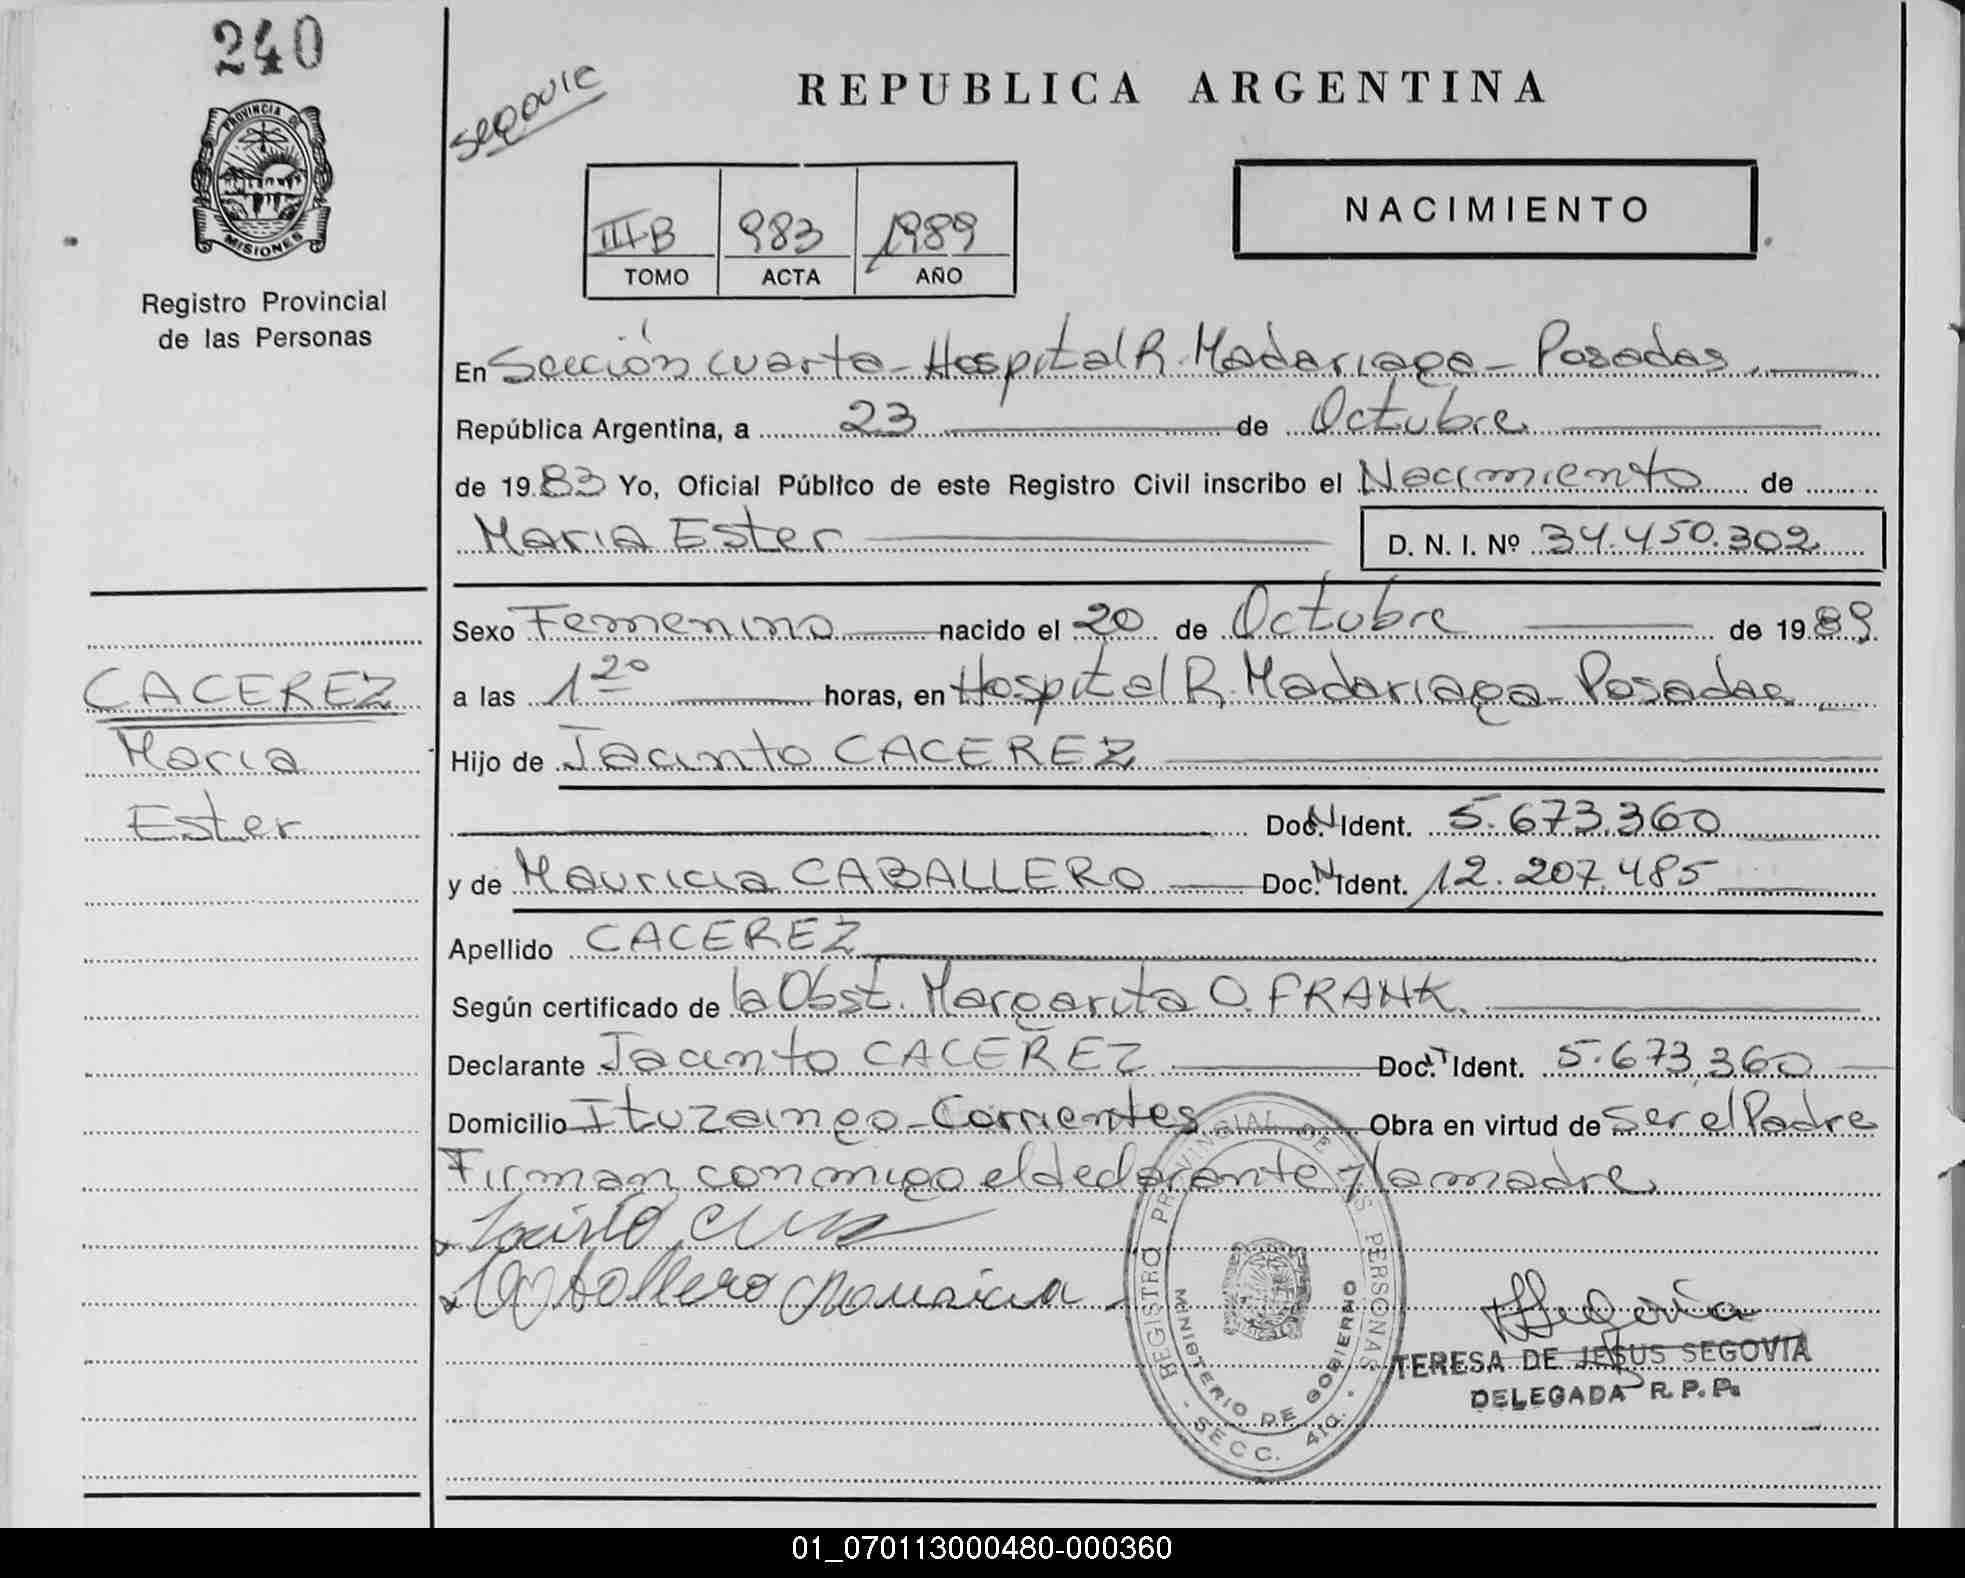 240
PROVINCIA DE
MISIONES
Registro Provincial
de las Personas
CACEREZ
Maria
Ester
REPUBLICA ARGENTINA
III B 983 1989
TOMO ACTA AÑO
NACIMIENTO
En Sección cuarta - Hospital R. Madariaga - Posadas,
República Argentina, a 23 de Octubre
de 19 89 Yo, Oficial Público de este Registro Civil inscribo el Nacimiento de
Maria Ester D. N. I. Nº 34.450.302
Sexo Femenino nacido el 20 de Octubre de 19 89
a las 1 20 horas, en Hospital R. Madariaga - Posadas
Hijo de Jacinto CACEREZ
Doc. N Ident. 5.673.360
y de Mauricia CABALLERO Doc. N Ident. 12.207.485
Apellido CACEREZ
Según certificado de la Obst. Margarita O. FRANK.
Declarante Jacinto CACEREZ Doc. Ident. 5.673.360
Domicilio Ituzaingo - Corrientes Obra en virtud de ser el Padre
Firman conmigo el declarante y la madre
Jacinto
Caballero Mauricia
Segovia
TERESA DE JESUS SEGOVIA
DELEGADA R. P. P.
REGISTRO PROVINCIAL DE LAS PERSONAS
MINISTERIO DE GOBIERNO
- SECC. 4ta. -
01_070113000480-000360